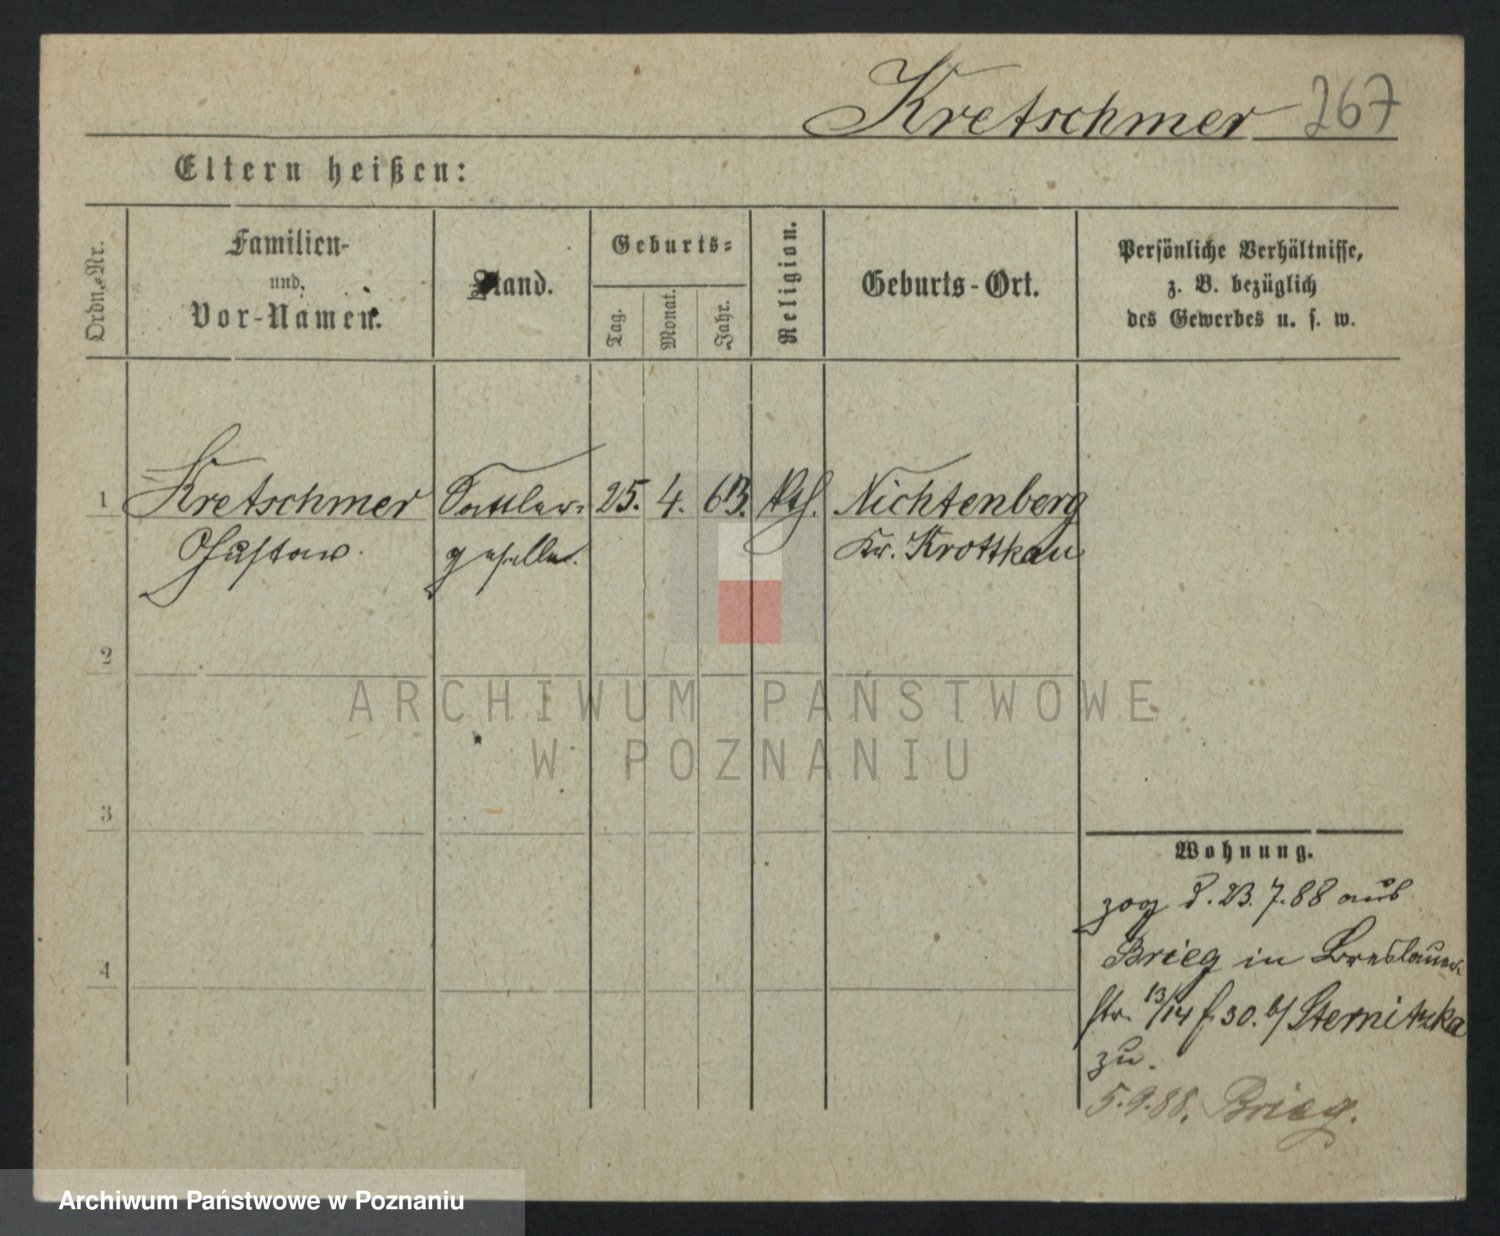 Kretschmer 267
Eltern heißen:
Ordn.-Nr.
Familien-
und
Vor-Namen.
Stand.
Geburts-
Tag.
Monat.
Jahr.
Religion.
Geburts-Ort.
Persönliche Verhältnisse,
z. B. bezüglich
des Gewerbes u. s. w.
1 Kretschmer Sattler- 25. 4. 63. Kth. Nichtenberg
Gustav geselle. Kr. Krottkau
2
3
4
ARCHIWUM PAŃSTWOWE
W POZNANIU
Wohnung.
zog d. 23. 7. 88 aus
Brieg in Breslauer
str. 13/14 f. 30. b/ Sternitzka
zu.
5. 9. 88. Brieg.
Archiwum Państwowe w Poznaniu